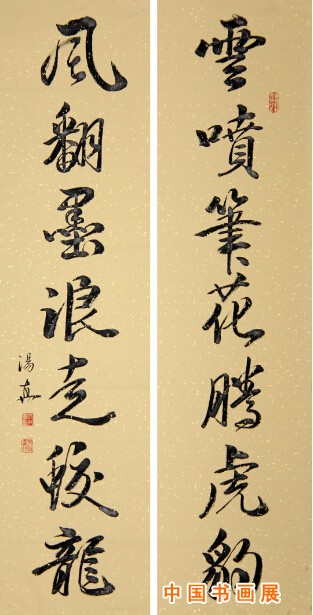 雲噴筆花騰虎豹
風翻墨浪走蛟龍
湯真
中国书画展